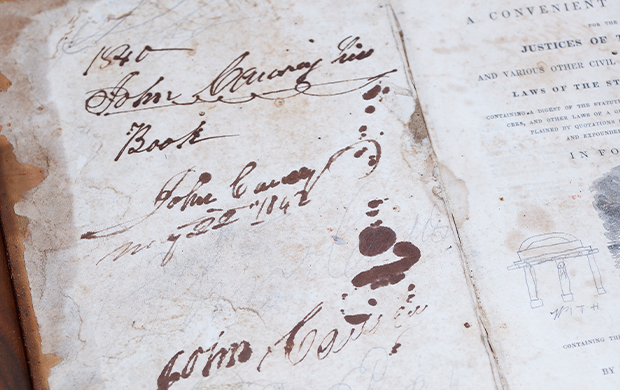 1840
John Causey his
Book
John Causey
May 22nd 1842
John Causey
A CONVENIENT
FOR THE
JUSTICES OF T
AND VARIOUS OTHER CIVIL
LAWS OF THE ST
CONTAINING A DIGEST OF THE STATUT
CERS, AND OTHER LAWS OF A G
PLAINED BY QUOTATIONS
AND EXPOUNDE
IN FO
WITH
CONTAINING TH
BY